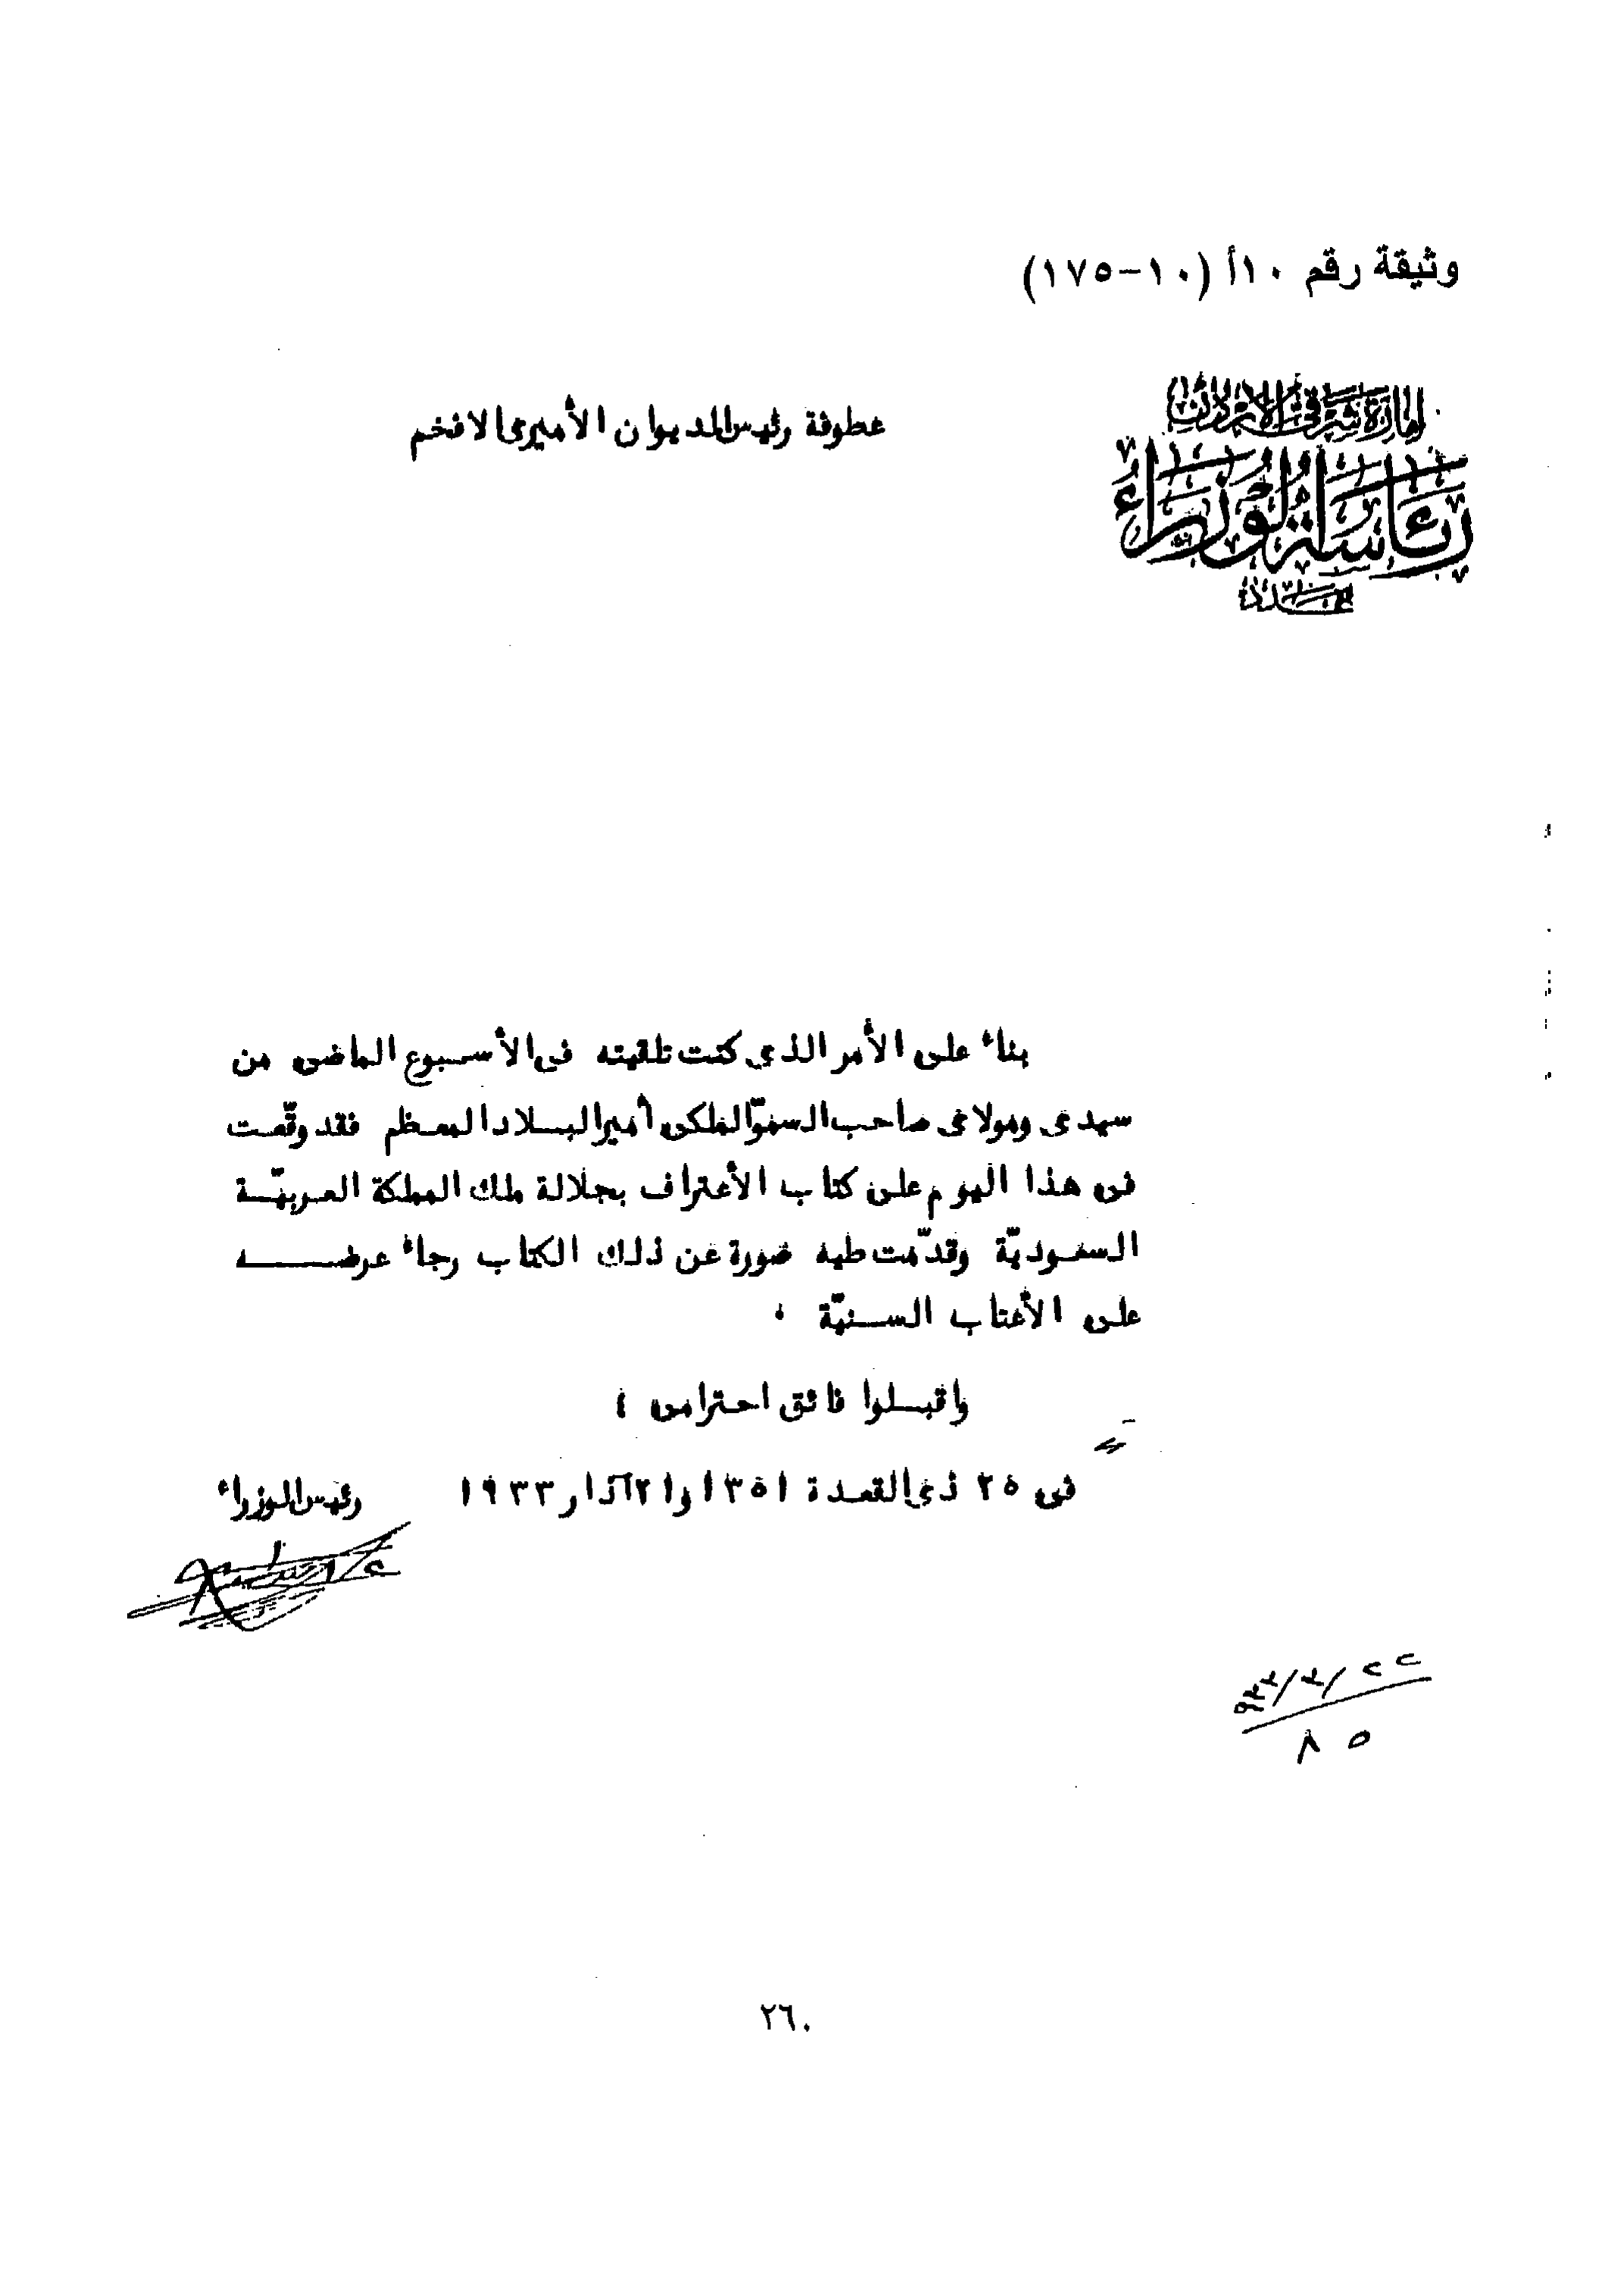 وثيقة رقم ١٠أ (١٠-١٧٥)
إمارة شرقي الأردن
رئاسة الوزراء
عطوفة رئيس الديوان الأميري الافخم
بناء على الأمر الذي كنت تلقيته في الأسبوع الماضي من
سيدي ومولاي صاحب السموّ الملكي أمير البلاد المعظم فقد وقّعت
في هذا اليوم على كتاب الأعتراف بجلالة ملك المملكة العربيّة
السعوديّة وقدّمت طيه صورة عن ذلك الكتاب رجاء عرضـــــه
على الأعتاب السنيّة ٠
واقبلوا فائق احترامي ؛
في ٢٥ ذي القعدة ١٣٥١ و٢١ آذار ١٩٣٣
رئيس الوزراء
٢٢/٣/٩٣٣
٨٥
٢٦٠